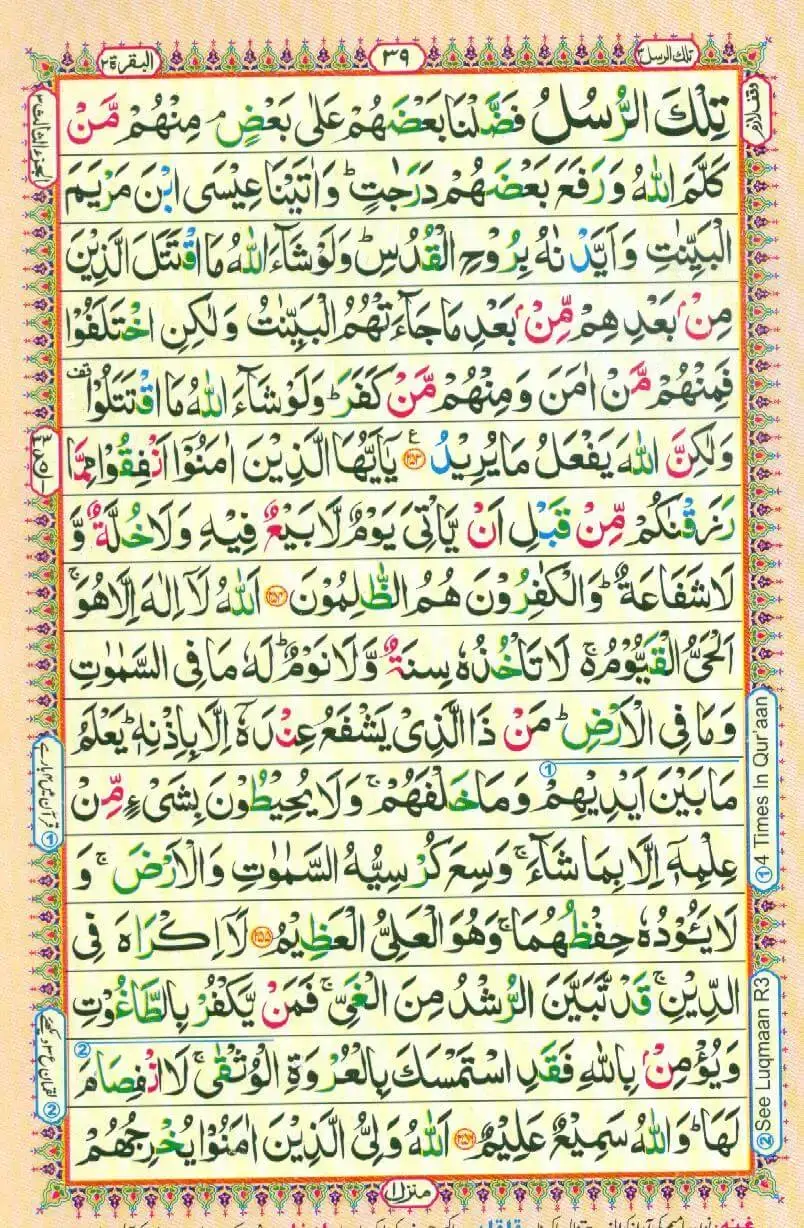 البقرة ٢
٣٩
تلك الرسل ٣
الجزء الثالث ٣
وقف لازم
تِلْكَ الرُّسُلُ فَضَّلْنَا بَعْضَهُمْ عَلٰى بَعْضٍ ۘ مِنْهُمْ مَّنْ
كَلَّمَ اللّٰهُ وَرَفَعَ بَعْضَهُمْ دَرَجٰتٍ ؕ وَاٰتَيْنَا عِيْسَى ابْنَ مَرْيَمَ
الْبَيِّنٰتِ وَاَيَّدْنٰهُ بِرُوْحِ الْقُدُسِ ؕ وَلَوْ شَآءَ اللّٰهُ مَا اقْتَتَلَ الَّذِيْنَ
مِنْۢ بَعْدِهِمْ مِّنْۢ بَعْدِ مَا جَآءَتْهُمُ الْبَيِّنٰتُ وَلٰكِنِ اخْتَلَفُوْا
فَمِنْهُمْ مَّنْ اٰمَنَ وَمِنْهُمْ مَّنْ كَفَرَ ؕ وَلَوْ شَآءَ اللّٰهُ مَا اقْتَتَلُوْا قف
وَلٰكِنَّ اللّٰهَ يَفْعَلُ مَا يُرِيْدُ ﴿۲۵۳﴾ ع يٰۤاَيُّهَا الَّذِيْنَ اٰمَنُوْۤا اَنْفِقُوْا مِمَّا
رَزَقْنٰكُمْ مِّنْ قَبْلِ اَنْ يَّاْتِيَ يَوْمٌ لَّا بَيْعٌ فِيْهِ وَلَا خُلَّةٌ وَّ
لَا شَفَاعَةٌ ؕ وَالْكٰفِرُوْنَ هُمُ الظّٰلِمُوْنَ ﴿۲۵۴﴾ اَللّٰهُ لَاۤ اِلٰهَ اِلَّا هُوَ ۚ
اَلْحَيُّ الْقَيُّوْمُ ۚ لَا تَاْخُذُهٗ سِنَةٌ وَّلَا نَوْمٌ ؕ لَهٗ مَا فِي السَّمٰوٰتِ
وَمَا فِي الْاَرْضِ ؕ مَنْ ذَا الَّذِيْ يَشْفَعُ عِنْدَهٗۤ اِلَّا بِاِذْنِهٖ ؕ يَعْلَمُ
مَا بَيْنَ اَيْدِيْهِمْ وَمَا خَلْفَهُمْ ۚ وَلَا يُحِيْطُوْنَ بِشَيْءٍ مِّنْ
عِلْمِهٖۤ اِلَّا بِمَا شَآءَ ۚ وَسِعَ كُرْسِيُّهُ السَّمٰوٰتِ وَالْاَرْضَ ۚ وَ
لَا يَـُٔوْدُهٗ حِفْظُهُمَا ۚ وَهُوَ الْعَلِيُّ الْعَظِيْمُ ﴿۲۵۵﴾ لَاۤ اِكْرَاهَ فِي
الدِّيْنِ ۚ قَدْ تَّبَيَّنَ الرُّشْدُ مِنَ الْغَيِّ ۚ فَمَنْ يَّكْفُرْ بِالطَّاغُوْتِ
وَيُؤْمِنْۢ بِاللّٰهِ فَقَدِ اسْتَمْسَكَ بِالْعُرْوَةِ الْوُثْقٰى ۚ لَا انْفِصَامَ
لَهَا ؕ وَاللّٰهُ سَمِيْعٌ عَلِيْمٌ ﴿۲۵۶﴾ اَللّٰهُ وَلِيُّ الَّذِيْنَ اٰمَنُوْا يُخْرِجُهُمْ
① 4 Times In Qur'aan
② See Luqmaan R3
① قرآن میں ۴ بار ہے
②
منزل ١